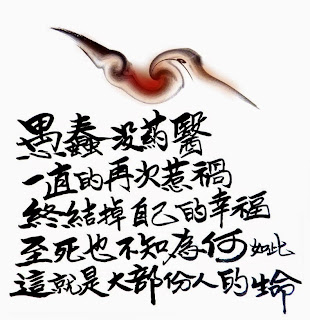 愚蠢没药醫
一直的再次惹禍
終結掉自己的幸福
至死也不知為何如此
這就是大部份人的生命